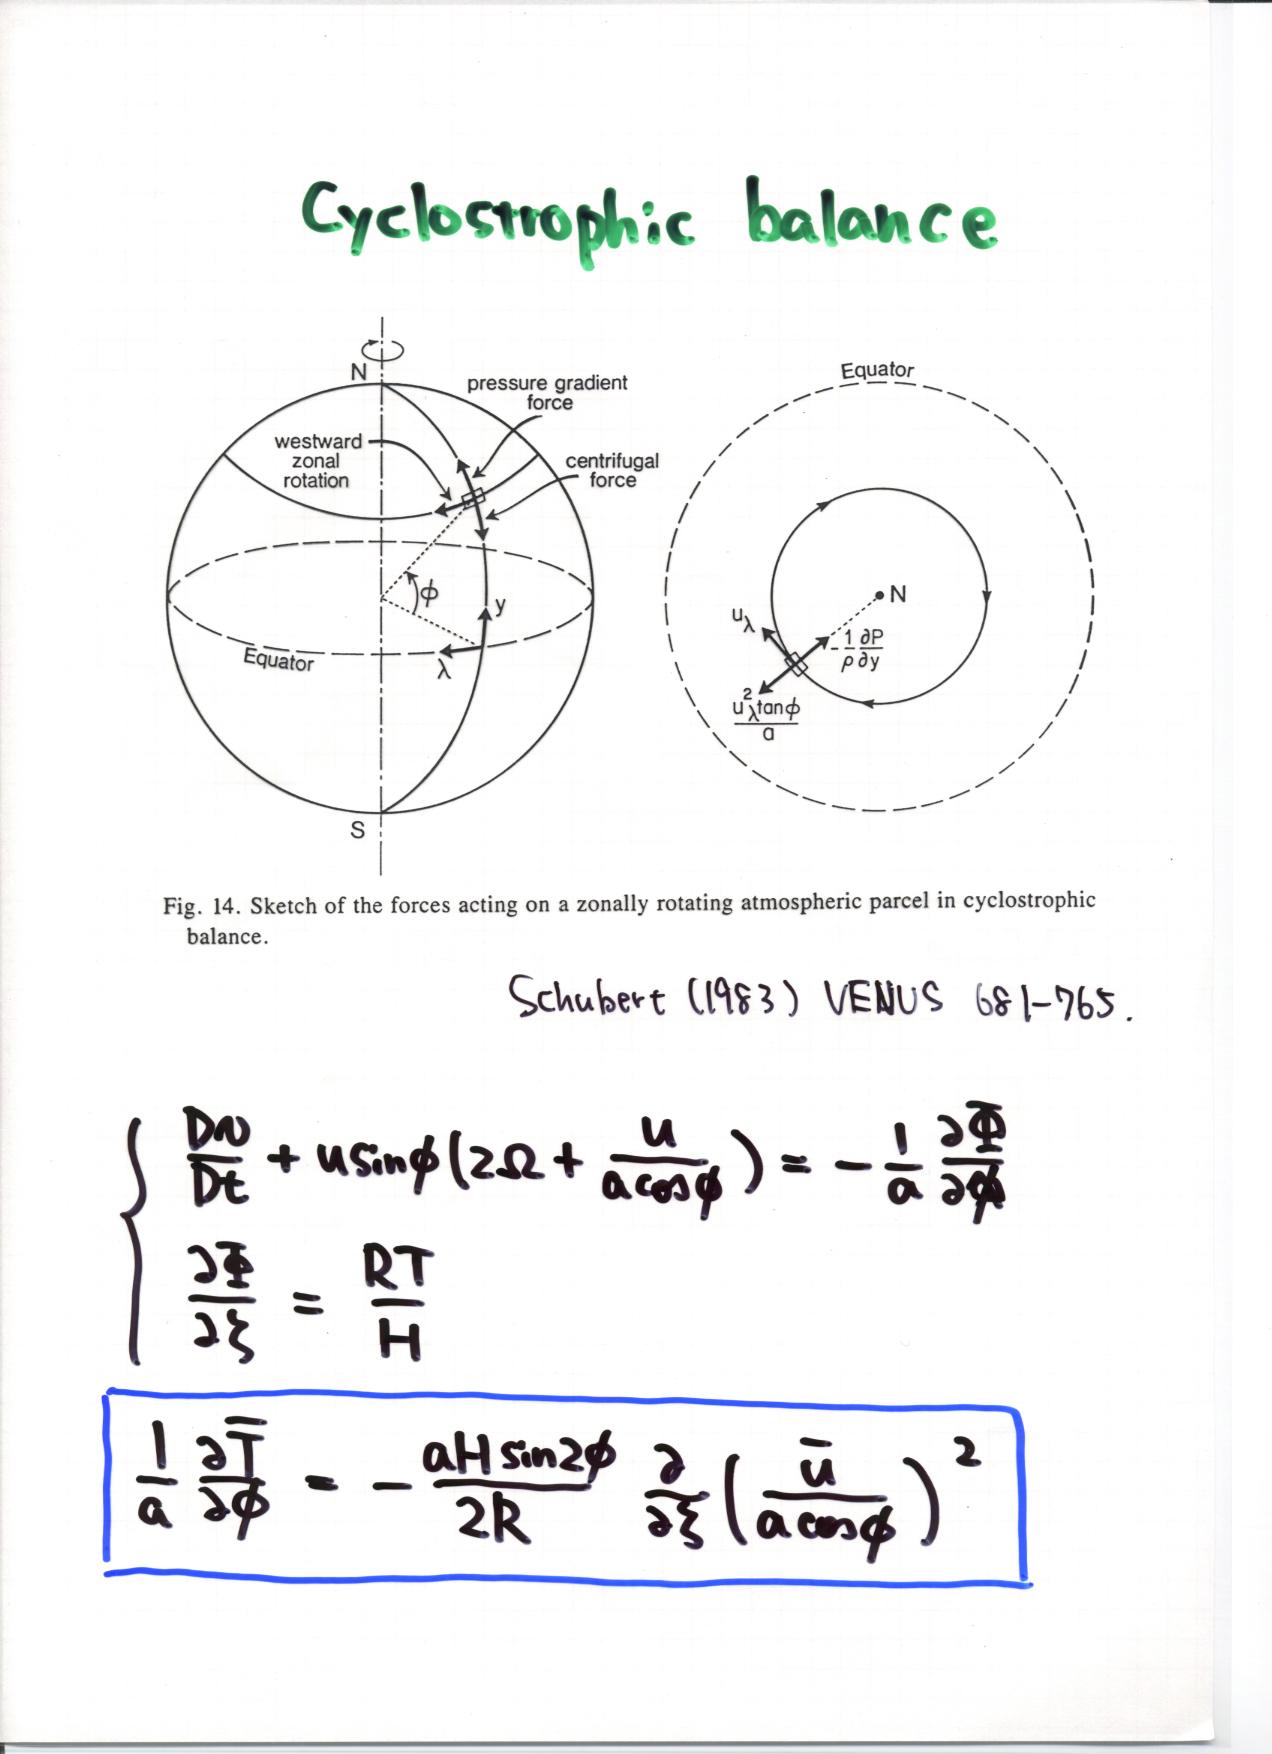 Cyclostrophic balance
N
pressure gradient
force
westward
zonal
rotation
centrifugal
force
φ
y
λ
Equator
S
Equator
N
uλ
-1/ρ ∂P/∂y
u²λ tanφ / a
Fig. 14. Sketch of the forces acting on a zonally rotating atmospheric parcel in cyclostrophic
balance.
Schubert (1983) VENUS 681-765.
Dv/Dt + u sinφ (2Ω + u/(a cosφ)) = - 1/a ∂Φ/∂φ
∂Φ/∂ξ = RT/H
1/a ∂T̄/∂φ = - (aH sin2φ)/(2R) ∂/∂ξ (ū/(a cosφ))²